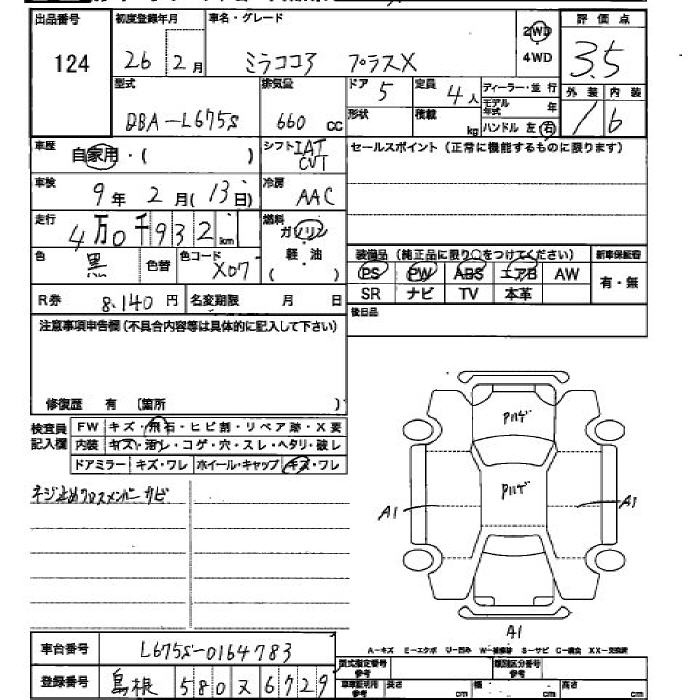 出品番号 初度登録年月 車名・グレード 評価点
124 26年2月 ミラココア プラスX 2WD 4WD 3.5
型式 排気量 ドア 5 定員 4人 ディーラー・並行 外装 内装
DBA-L675S 660 cc 形状 積載 kg モデル年式 年 ハンドル 左 右 1 b
車歴 自家用・( ) シフト IAT CVT セールスポイント (正常に機能するものに限ります)
車検 9年 2月 (13日) 冷房 AAC
走行 4万0千932km 燃料 ガソリン 軽・油 ( )
色 黒 色替 色コード X07 装備品 (純正品に限り○をつけてください) 新車保証書
PS PW ABS エアB AW 有・無
R券 8,140円 名変期限 月 日 SR ナビ TV 本革
注意事項申告欄(不具合内容等は具体的に記入して下さい) 後日品
修復歴 有 (箇所 )
検査員記入欄 FW キズ・飛石・ヒビ割・リペア跡・X要
内装 キズ・汚レ・コゲ・穴・スレ・ヘタリ・破レ
ドアミラー キズ・ワレ ホイール・キャップ キズ・ワレ
ネジ止めクロスメンバー サビ
Pハゲ
Pハゲ
A1 A1
A1
車台番号 L675S-0164783
A-キズ E-エクボ U-凹み W-補修跡 S-サビ C-腐食 XX-交換済
登録番号 島根 580 ヌ 6729
型式指定番号 参考 類別区分番号 参考
車車証明用 参考 長さ cm 幅 cm 高さ cm